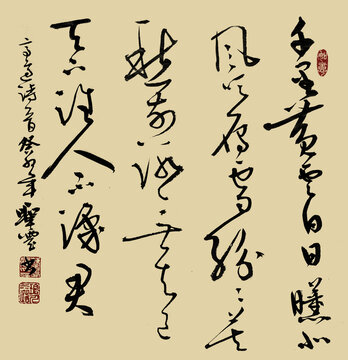 千里黄云白日曛北
风吹雁雪纷纷莫
愁前路无知己
天下谁人不识君
高适诗一首癸卯年聖雲书